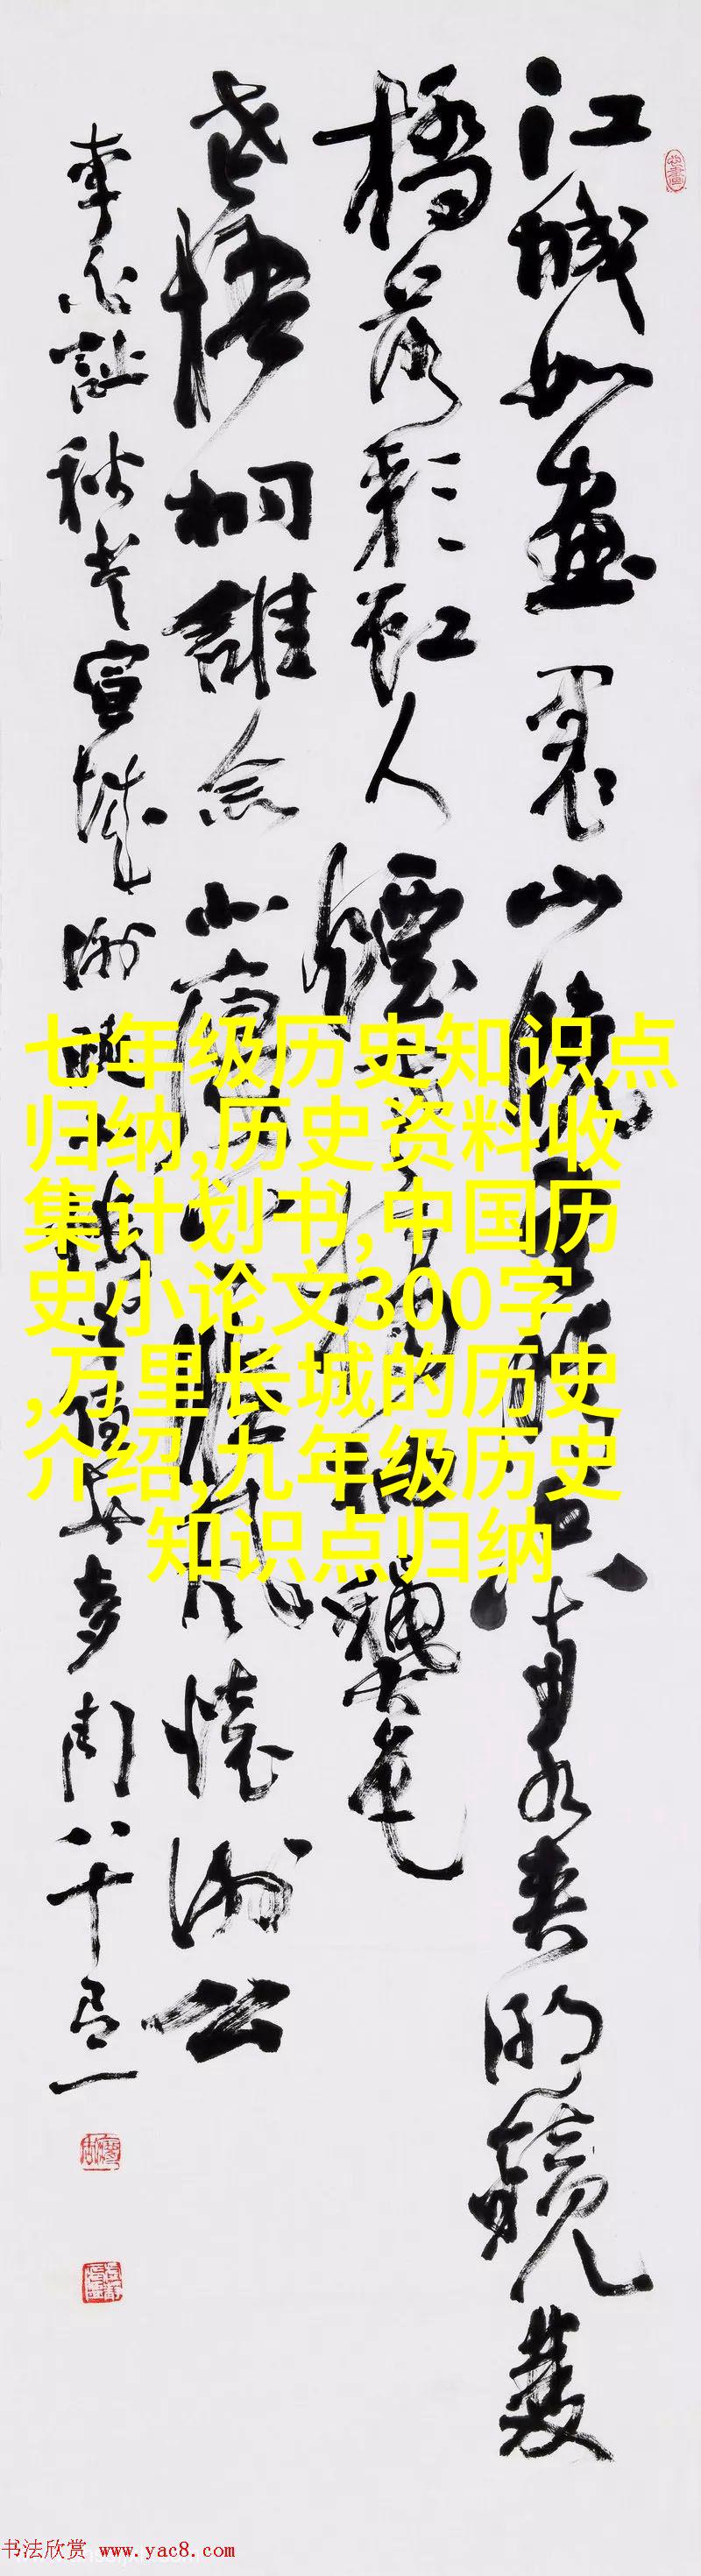 江城如畫裏山曉望晴空两水夾明鏡雙
橋落彩虹人煙寒橘柚龝色
老梧桐誰念北樓上臨風懷謝公
李白詩秋登宣城謝朓北樓 八十有一
七年级历史知识点
归纳,历史资料收
集计划书,中国历
史小论文300字
,万里长城的历史
介绍,九年级历史
知识点归纳
书法欣赏 www.yac8.com